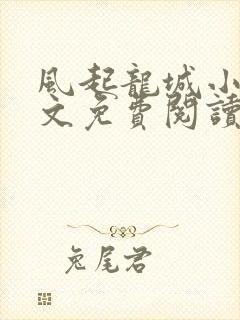 風起龍城小
文免費閱讀
兔尾君